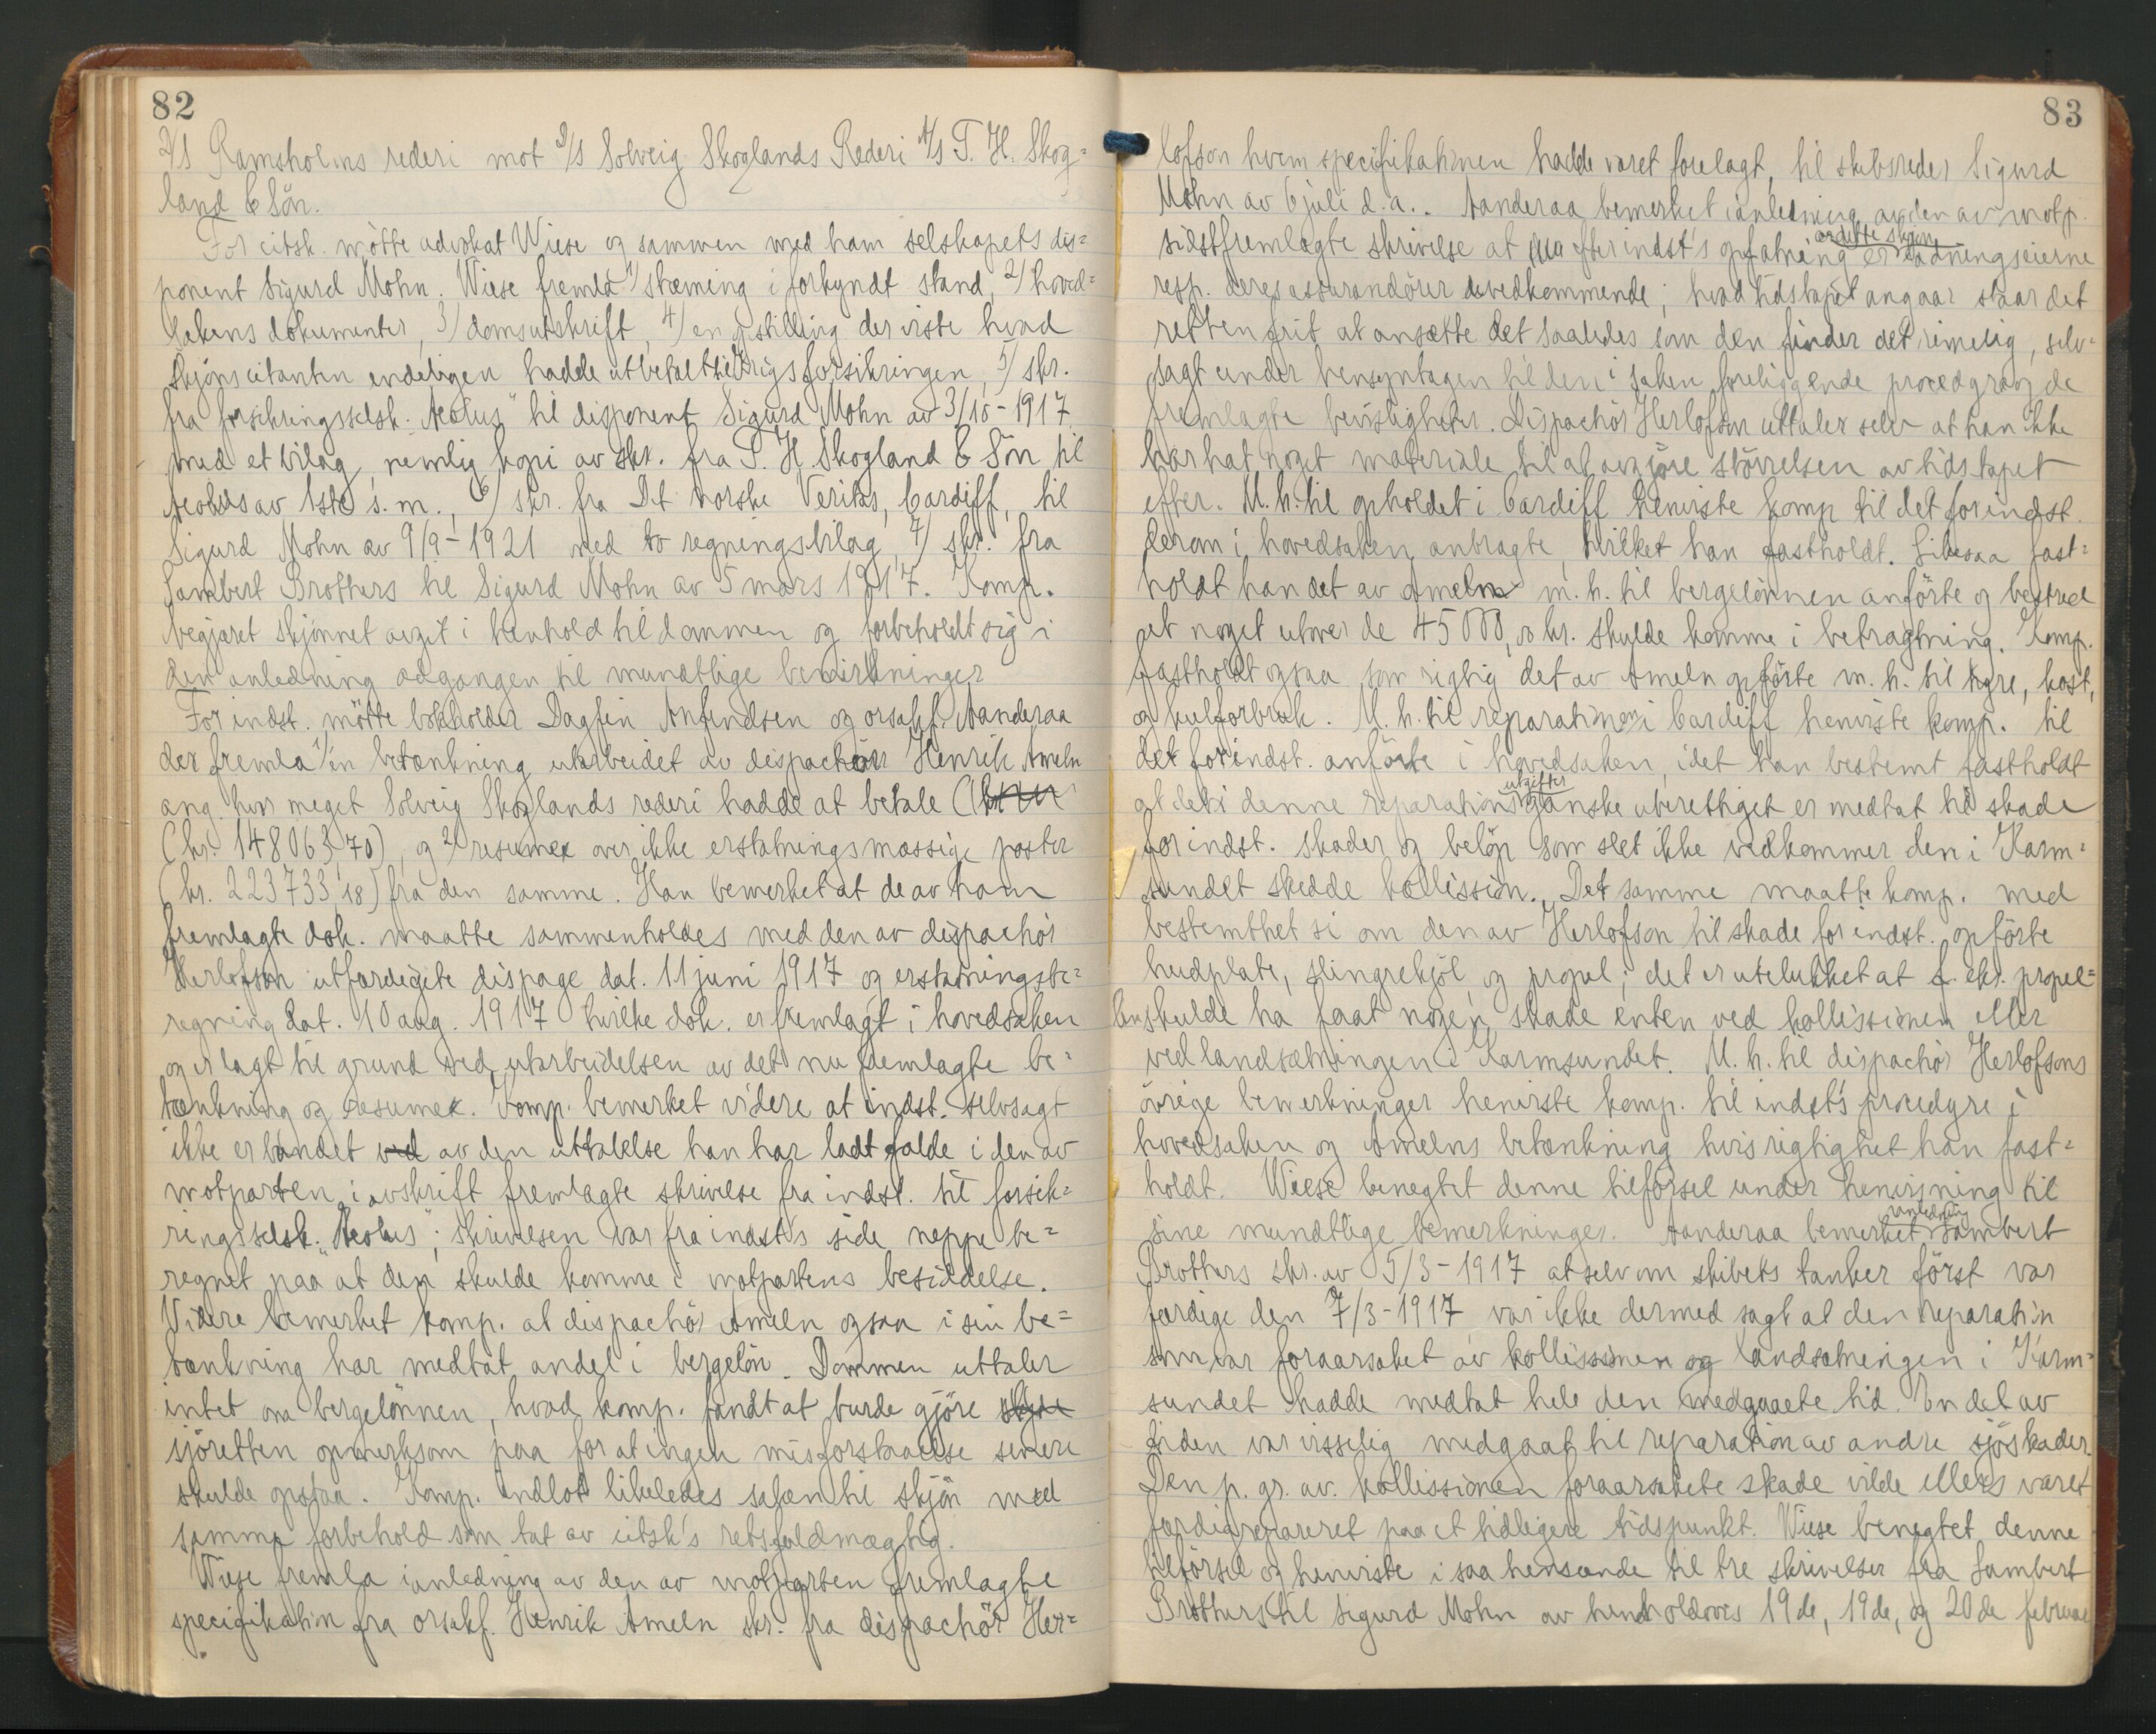 82
D/S Ramsholms rederi mot D/S Solveig Skoglands Rederi A/S T. H. Skog=
land & Sön.
For citsk. mötte advokat Wiese og sammen med ham selskapets dis=
ponent Sigurd Mohn. Wiese fremla 1) stævning i forkyndt stand, 2) hoved=
sakens dokumenter, 3) domsutskrift, 4) en opstilling der viste hvad
skjönscitanten endeligen hadde utbetalt til krigsforsikringen, 5) skr.
fra forsikringsselsk. "Æolus" til disponent Sigurd Mohn av 3/10-1917
med et bilag, nemlig kopi av skr. fra T. H. Skogland & Sön til
Æolus av 1ste s.m., 6) skr. fra Det norske Veritas, Cardiff, til
Sigurd Mohn av 9/9-1921 med to regningsbilag, 7) skr. fra
Lambert Brothers til Sigurd Mohn av 5 mars 1917. Komp.
begjæret skjönnet avgit i henhold til dommen og forbeholdt sig i
den anledning adgangen til mundtlige bemerkninger
For indst. mötte bokholder Dagfin Anfindsen og orsakf. Aanderaa
der fremla 1) en betænkning utarbeidet av dispachör Henrik Ameln
ang. hvor meget Solveig Skoglands rederi hadde at betale
(kr. 148063,70), og 2) resumee over ikke erstatningsmæssige poster
(kr. 223733,18) fra den samme. Han bemerket at de av ham
fremlagte dok. maatte sammenholdes med den av dispachör
Herlofson utfærdigete dispage dat. 11 juni 1917 og erstatningsbe=
regning dat. 10 aug. 1917 hvilke dok. er fremlagt i hovedsaken
og er lagt til grund ved utarbeidelsen av det nu fremlagte be=
tænkning og resumee. Komp. bemerket videre at indst. selvsagt
ikke er bundet ved av den uttalelse han har ladt falde i den av
motparten i avskrift fremlagte skrivelse fra indst. til forsik=
ringsselsk. "Æolus"; skrivelsen var fra indst's side neppe be=
regnet paa at den skulde komme i motpartens besiddelse.
Videre bemerket komp. at dispachör Ameln ogsaa i sin be=
tænkning har medtat andel i bergelön. Dommen uttaler
intet om bergelönnen, hvad komp. fandt at burde gjöre
sjöretten opmerksom paa for at ingen misforstaaelse senere
skulde opstaa. Komp. indlot likeledes saken til skjön med
samme forbehold som tat av citsk's retsfuldmægtig.
Wiese fremla i anledning av den av motparten fremlagte
specifikation fra orsakf. Henrik Ameln skr. fra dispachör Her=
83
lofson hvem specifikationen hadde været forelagt, til skibsreder Sigurd
Mohn av 6 juli d.a.. Aanderaa bemerket i anledning av den av motp.
sidstfremlagte skrivelse at efter indst's opfatning er dette skjön ladningseierne
resp. deres assurandörer uvedkommende; hvad tidstapet angaar staar det
retten frit at ansætte det saaledes som den finder det rimelig, selv=
sagt under hensyntagen til den i saken foreliggende procedyre og de
fremlagte bevisligheter. Dispachör Herlofson uttaler selv at han ikke
har hat noget materiale til at avgjöre störrelsen av tidstapet
efter. M.h. til opholdet i Cardiff henviste komp til det for indst.
derom i hovedsaken anbragte, hvilket han fastholdt. Likesaa fast=
holdt han det av Ameln m.h. til bergelönnen anförte og bestred
at noget utover de 45000,00 kr. skulde komme i betragtning. Komp.
fastholdt ogsaa som rigtig det av Ameln opförte m.h. til hyre, kost,
og kulforbruk. M.h. til reparationen i Cardiff henviste komp. til
det for indst. anförte i hovedsaken, idet han bestemt fastholdt
at det i denne reparationsutgifter ganske uberettiget er medtat til skade
for indst. skader og belöp som slet ikke vedkommer den i Karm=
sundet skedde kollission. Det samme maatte komp. med
bestemthet si om den av Herlofson til skade for indst. opförte
hudplate, slingrekjöl, og propel; det er utelukket at f. eks. propel=
len skulde ha faat nogen skade enten ved kollissionen eller
ved landsætningen i Karmsundet. M.h. til dispachör Herlofsons
övrige bemerkninger henviste komp. til indst's procedyre i
hovedsaken og Amelns betænkning hvis rigtighet han fast=
holdt. Wiese benegtet denne tilförsel under henvisning til
sine mundtlige bemerkninger. Aanderaa bemerket i anledning Lambert
Brothers skr. av 5/3-1917 at selv om skibets tanker först var
færdige den 7/3-1917 var ikke dermed sagt at den reparation
som var foraarsaket av kollissionen og landsætningen i Karm=
sundet hadde medtat hele den medgaaete tid. En del av
tiden var visselig medgaat til reparation av andre sjöskader.
Den p. gr. av. kollissionen foraarsakete skade vilde ellers været
færdigrepareret paa et tidligere tidspunkt. Wiese benegtet denne
tilförsel og henviste i saa henseende til tre skrivelser fra Lambert
Brothers til Sigurd Mohn av henholdsvis 19de, 19de, og 20de februar